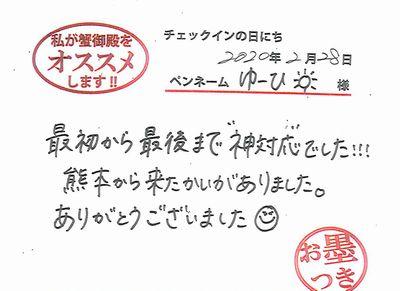 私が蟹御殿を
オススメ
します!!
チェックインの日にち
2020年2月28日
ペンネーム ゆーひ 様
最初から最後まで神対応でした!!!
熊本から来たかいがありました。
ありがとうございました
お墨
つき